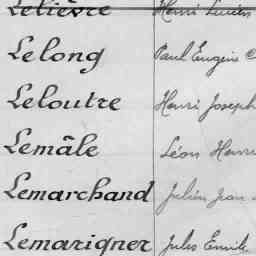 Lelièvre Henri Lucien
Lelong Paul Eugène
Leloutre Henri Joseph
Lemâle Léon Henri
Lemarchand Julien Jean
Lemarigner Jules Emile